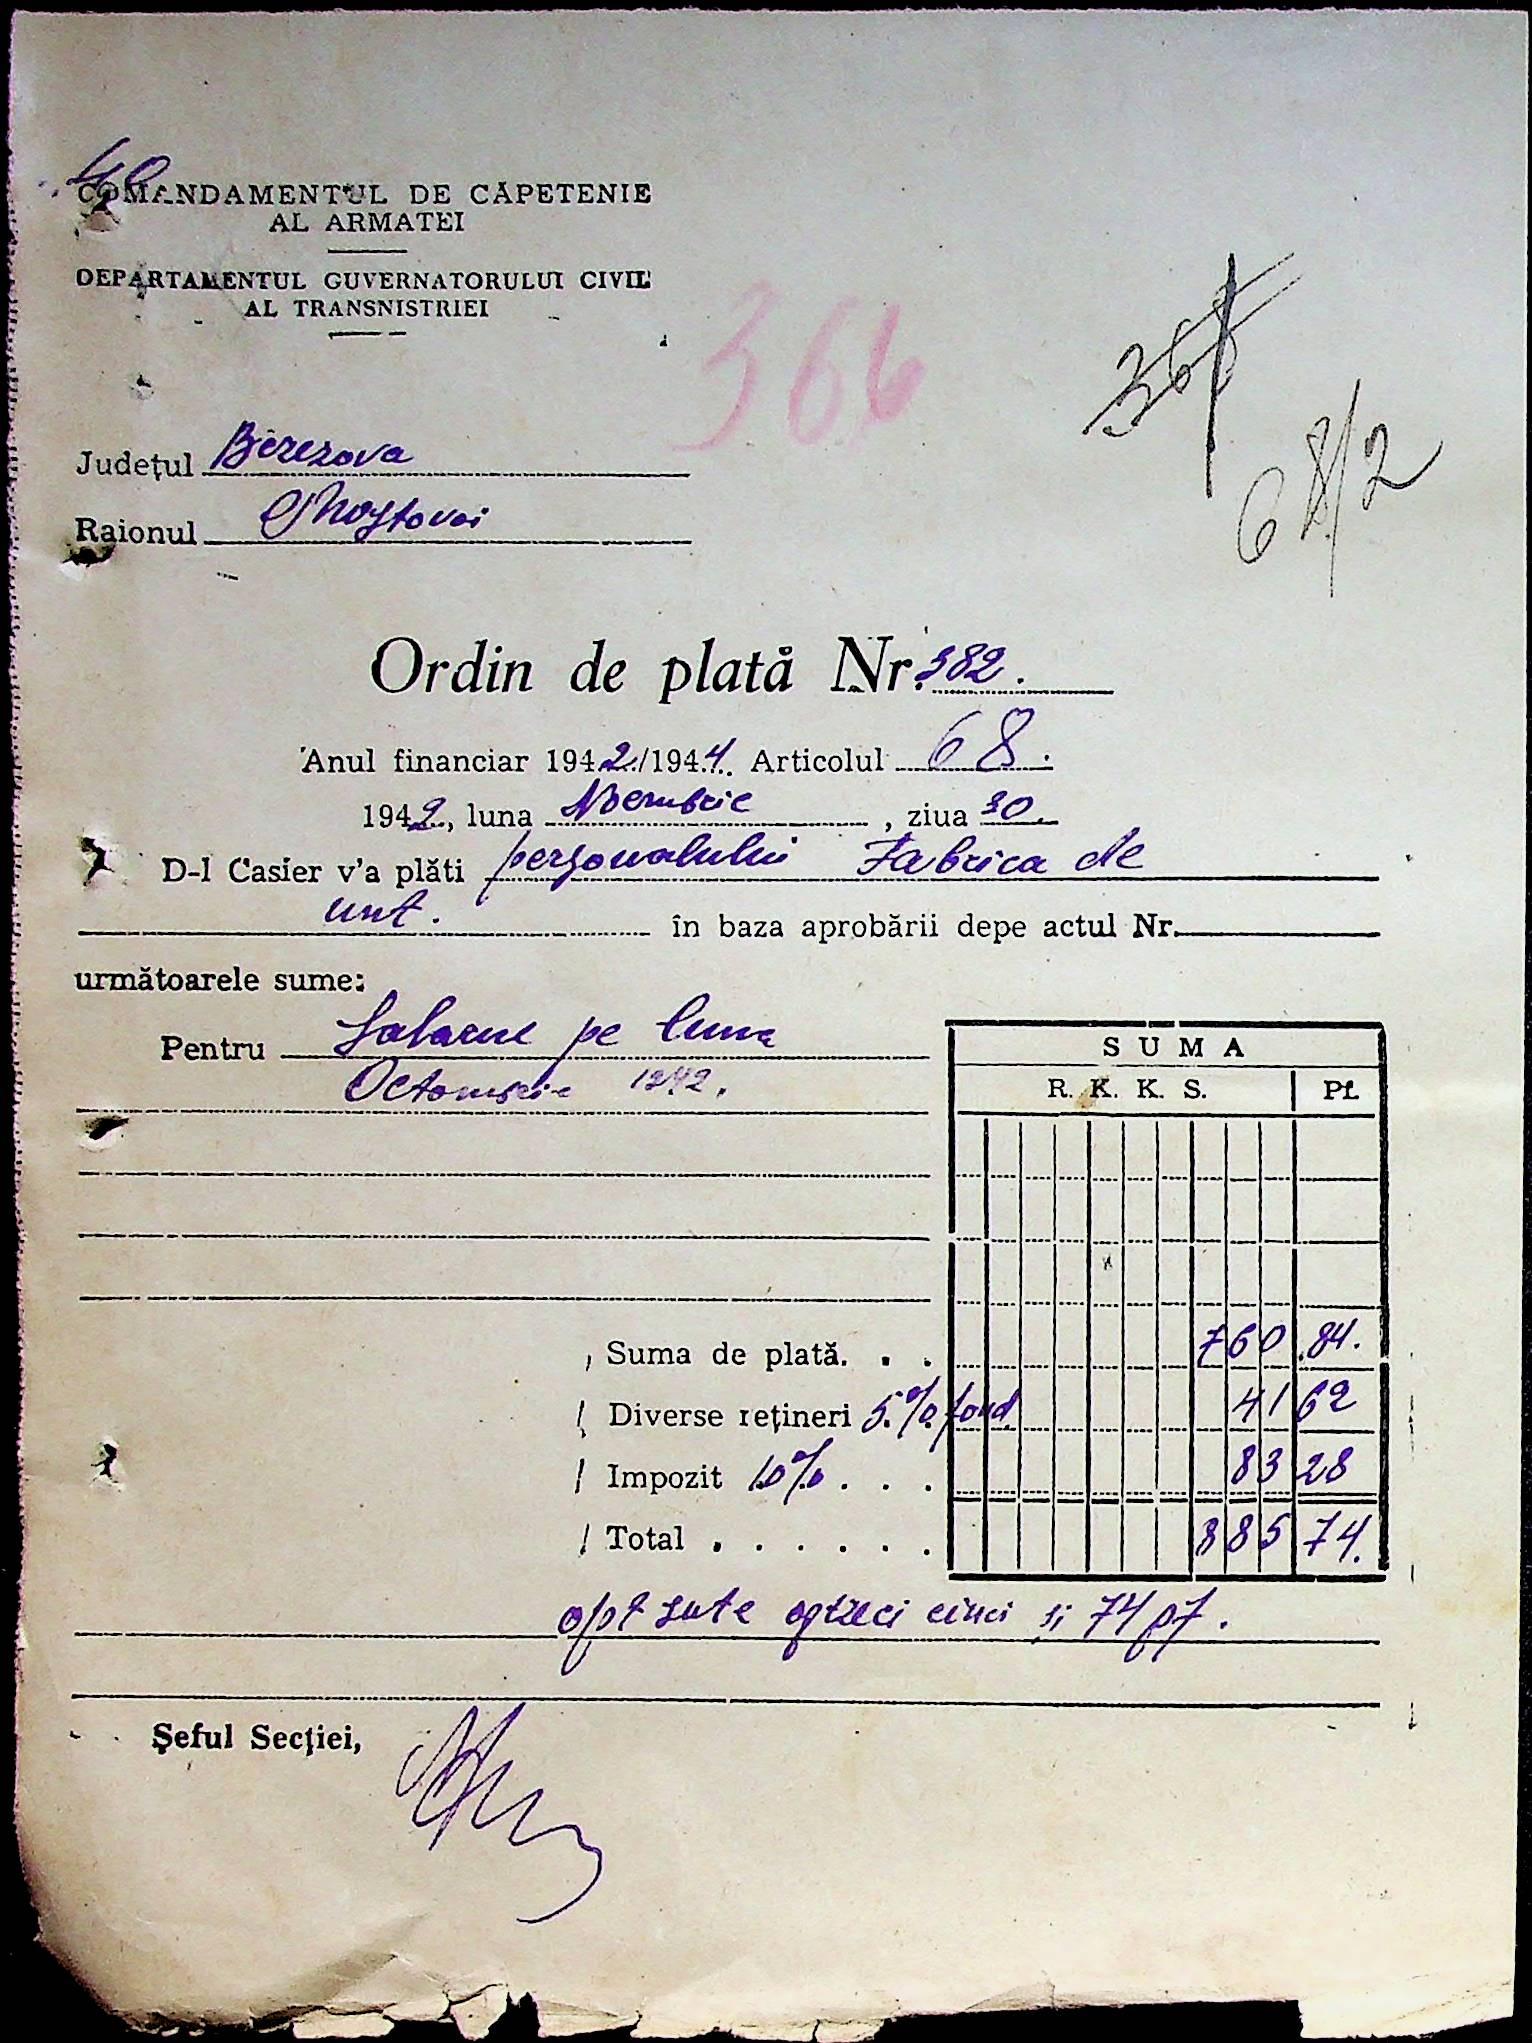 40
COMANDAMENTUL DE CĂPETENIE
AL ARMATEI
DEPARTAMENTUL GUVERNATORULUI CIVIL
AL TRANSNISTRIEI
366
68/2
Județul Berezova
Raionul Mostovoi
Ordin de plată Nr. 382.
Anul financiar 1942/1944. Articolul 68.
1942, luna Noembrie, ziua 30.
D-l Casier v'a plăti personalului Fabrica de
unt. în baza aprobării depe actul Nr.
următoarele sume:
Pentru Salarul pe luna
Octombrie 1942.
SUMA
R. K. K. S. Pf.
Suma de plată. . . 760 84.
Diverse rețineri 5% fond 41 62
Impozit 10% . . . 83 28
Total . . . . . . 885 74.
opt sute optzeci cinci si 74 pf.
Șeful Secției,